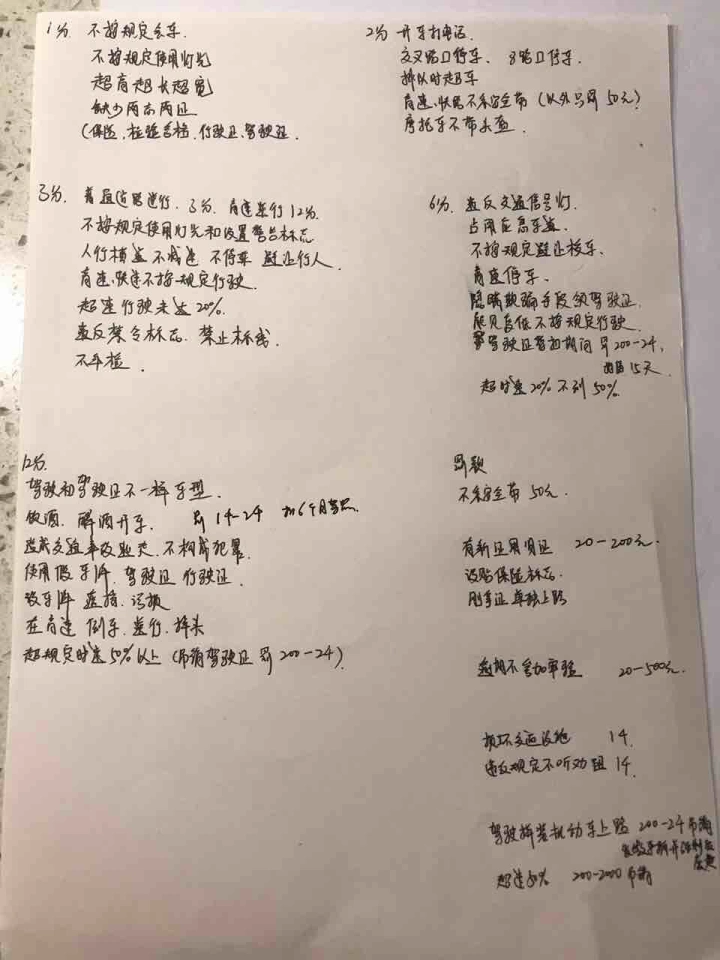 1分. 不按规定会车.
不按规定使用灯光
超高超长超宽
缺少两志两证
(保险、检验合格、行驶证、驾驶证.
2分 开车打电话.
交叉路口停车.
排队时超车
高速、快路不系安全带 (以外只罚50元)
摩托车不带头盔.
3分.
3分. 高速逆行12分.
不按规定使用灯光和设置警告标志
人行横道不减速 不停车 避让行人.
高速、快速不按规定行驶.
超速行驶未达20%.
违反禁令标志. 禁止标线.
不年检.
6分. 违反交通信号灯.
占用应急车道.
不按规定避让校车.
高速停车.
隐瞒欺骗手段领驾驶证.
能见度低不按规定行驶.
驾驶证暂扣期间 罚200-2千,
15天.
超时速20% 不到50%.
12分.
驾驶和驾驶证不一样车型.
饮酒. 醉酒开车. 罚1千-2千 扣6个月驾照.
造成交通事故逃逸. 不构成犯罪.
使用假车牌. 驾驶证 行驶证.
故车牌 遮挡. 污损
在高速 倒车. 逆行. 掉头
超规定时速50%以上 (吊销驾驶证 罚200-2千).
罚款
不系安全带 50元.
20-200元.
没贴保险标志.
单独上路
逾期不参加审验 20-500元.
损坏交通设施 1千.
违反规定不听劝阻 1千.
驾驶拼装机动车上路 200-2千 吊销
超速50% 200-2000 吊销